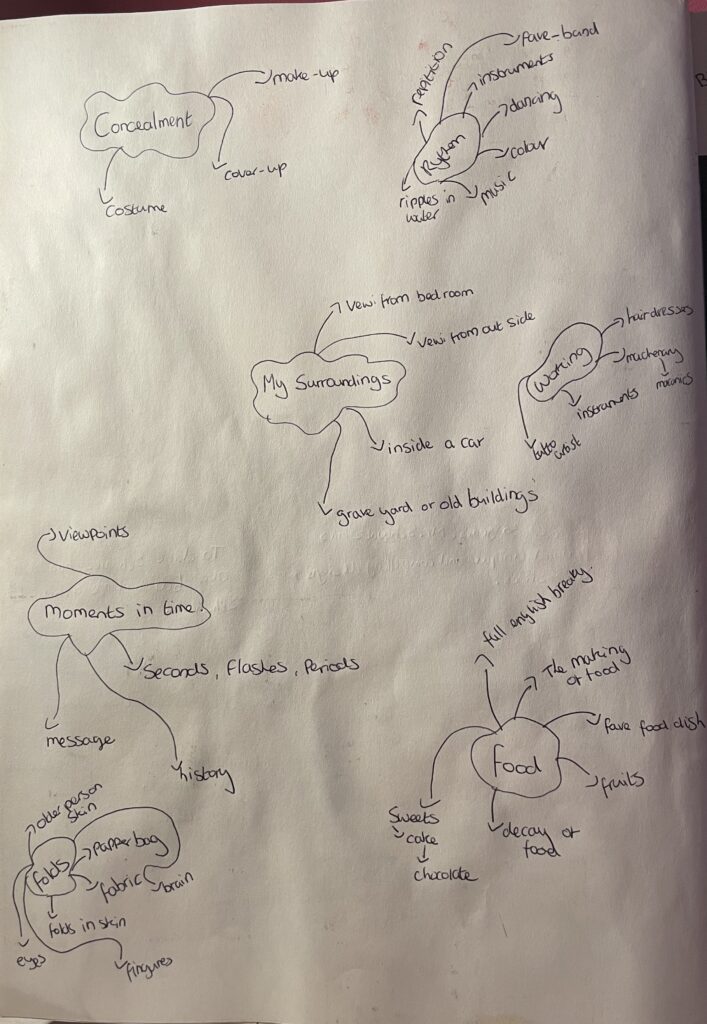 Concealment
make-up
cover-up
costume
fave-band
repitition
instruments
dancing
colour
music
ripples in
water
My Surroundings
vew from bedroom
vew from out side
inside a car
grave yard or old buildings
Working
hairdresses
instruments
artist
Moments in time
viewpoints
Seconds, flashes, Periods
message
history
food
full english breaky
The making
of food
fave food dish
fruits
decay of
food
Sweets
cake
chocolate
folds
older person
skin
papper bag
fabric
brain
folds in skin
eyes
fingures